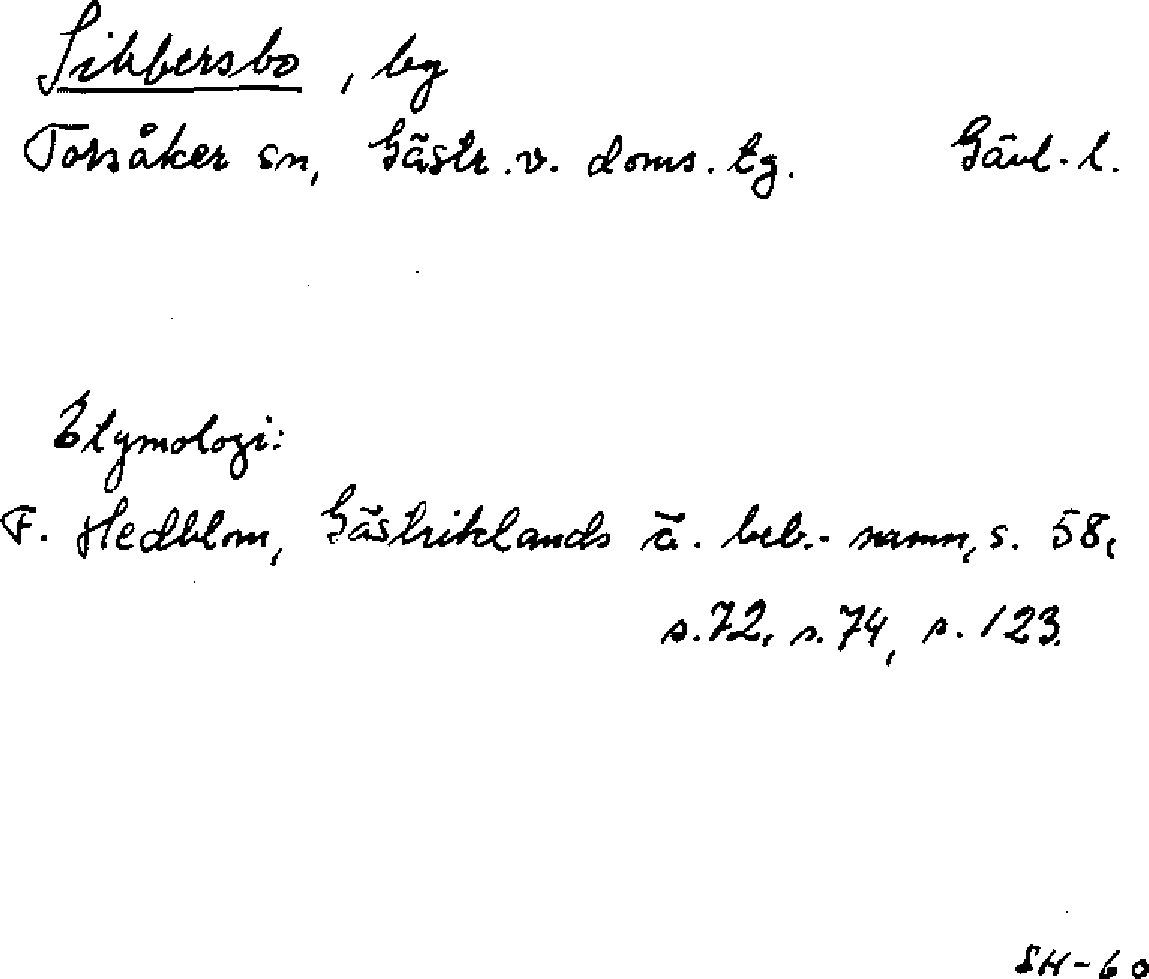 Sibbersbo, by
Torsåker sn, Gästr. v. doms. tg. Gävl. l.
Etymologi:
F. Hedblom, Gästriklands ä. beb.-namn, s. 58,
s. 72, s. 74, s. 123.
SH-60